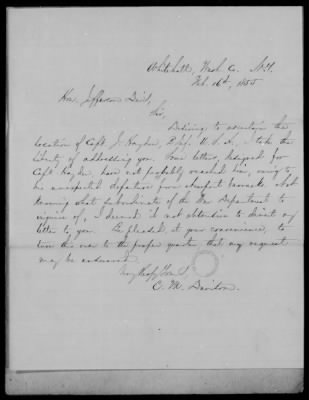 Whitehall, Wash. Co. N.Y.
Feb. 16th, 1855
Hon. Jefferson Davis,
Sir,
Desiring to ascertain the
location of Capt. J. Hayden, 2d Inf. U.S.A., I take the
liberty of addressing you. Some letters, designed for
Capt. Hayden, have not probably reached him, owing to
his unexpected departure from Newport Barracks. Not
knowing what subordinate of the War Department to
inquire of, I deemed it not obtrusive to direct my
letter to you. Be pleased, at your convenience, to
turn this over to the proper quarter, that my request
may be answered.
Very Resp'y Yours,
C. M. Davison.